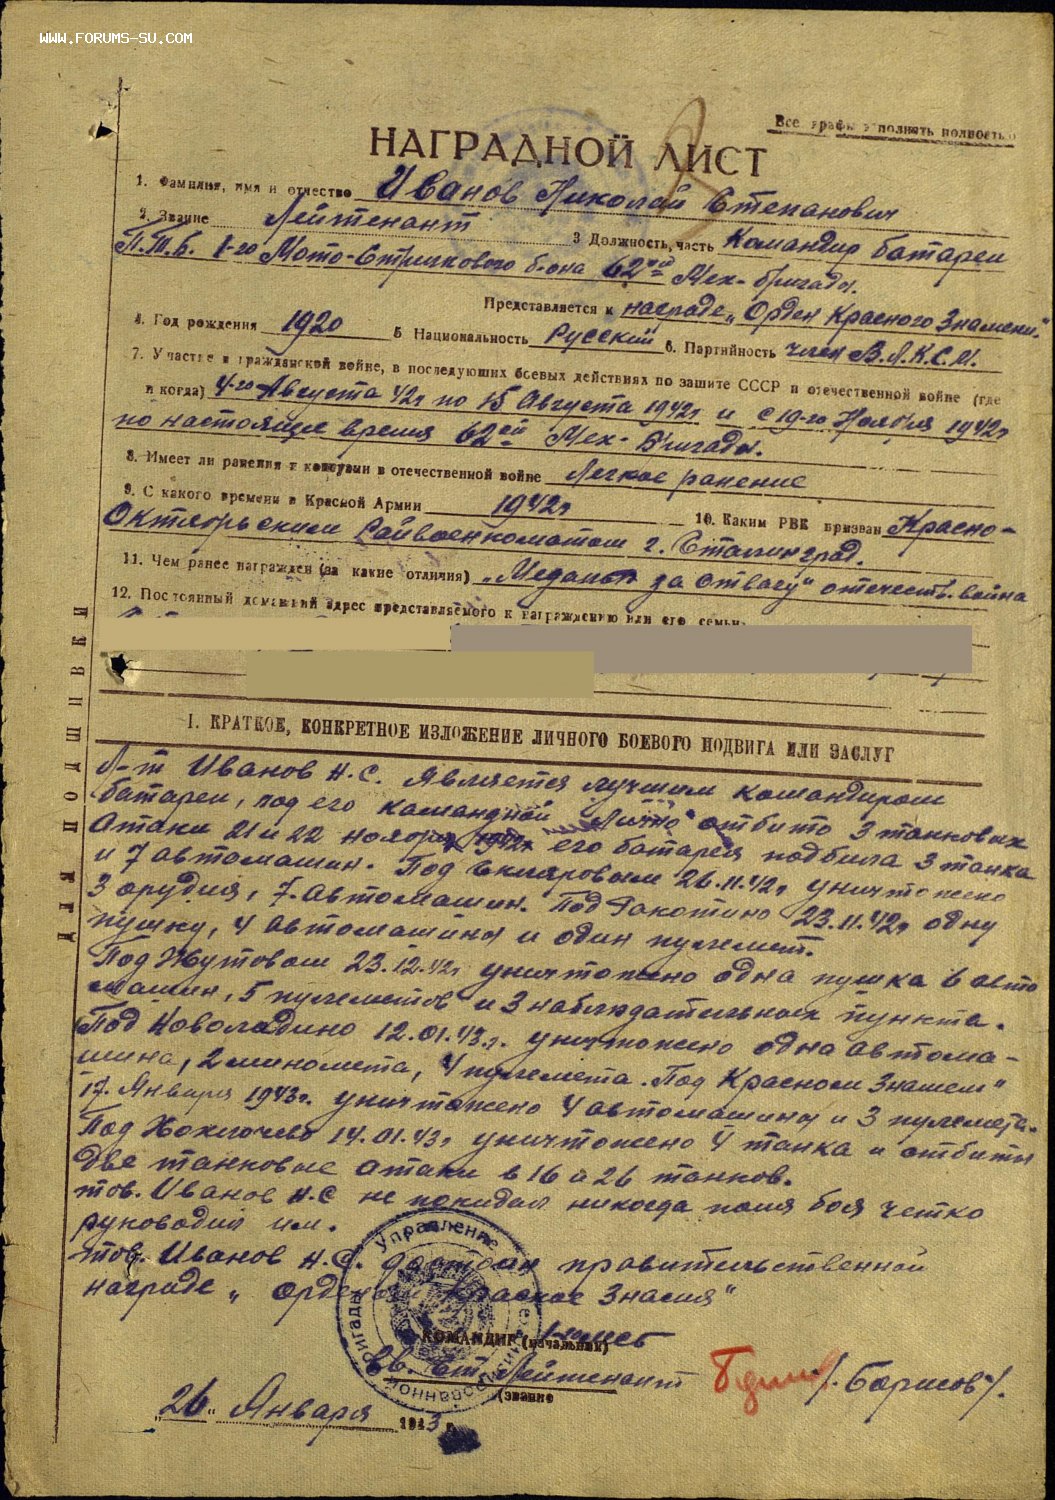 WWW.FORUMS-SU.COM
Все графы заполнять полностью
НАГРАДНОЙ ЛИСТ
1. Фамилия, имя и отчество Иванов Николай Степанович
2. Звание Лейтенант 3 Должность, часть Командир батареи
П.Т.Б. 1-го Мото-Стрелкового б-она 62ой Мех-бригады.
Представляется к награде „Орден Красного Знамени."
4. Год рождения 1920 5 Национальность Русский 6. Партийность член В.Л.К.С.М.
7. Участие в гражданской войне, в последующих боевых действиях по защите СССР и отечественной войне (где
и когда) 4-го Августа 42г по 15 Августа 1942г и с 19-го Ноября 1942г
по настоящее время 62ей Мех-Бригады.
8. Имеет ли ранения и контузии в отечественной войне Легкое ранение
9. С какого времени в Красной Армии 1942г 10. Каким РВК призван Красно-
Октябрьским Райвоенкоматом г. Сталинград.
11. Чем ранее награжден (за какие отличия) „Медаль за отвагу" отечеств. война
12. Постоянный домашний адрес представляемого к награждению или его семьи
ДЛЯ ПОДШИВКИ
I. КРАТКОЕ, КОНКРЕТНОЕ ИЗЛОЖЕНИЕ ЛИЧНОГО БОЕВОГО ПОДВИГА ИЛИ ЗАСЛУГ
Л-т Иванов Н.С. Является лучшим командиром
батареи, под его командной лично отбито 3 танковых
Атаки 21 и 22 ноября его батарея подбила 3 танка
и 7 автомашин. Под 26.11.42г уничтожено
3 орудия, 7 автомашин. Под 23.11.42г одну
пушку, 4 автомашины и один пулемет.
Под Жутовом 23.12.42г уничтожено одна пушка 6 авто
машин, 5 пулеметов и 3 наблюдательных пункта.
Под 12.01.43г. уничтожено одна автома-
шина, 2 миномета, 4 пулемета. Под Красном Знамем"
17. Января 1943г. уничтожено 4 автомашины и 3 пулемета.
Под 14.01.43г уничтожено 4 танка и отбиты
две танковые атаки в 16 и 26 танков.
тов. Иванов Н.С не покидал никогда поля боя четко
руководил им.
тов. Иванов Н.С. достоин правительственной
награде „ орденом Красное Знамя"
Управление
бригады
КОМАНДИР (начальник)
гв. Ст. Лейтенант /Борисов/.
(звание
„26" Января 1943 г.